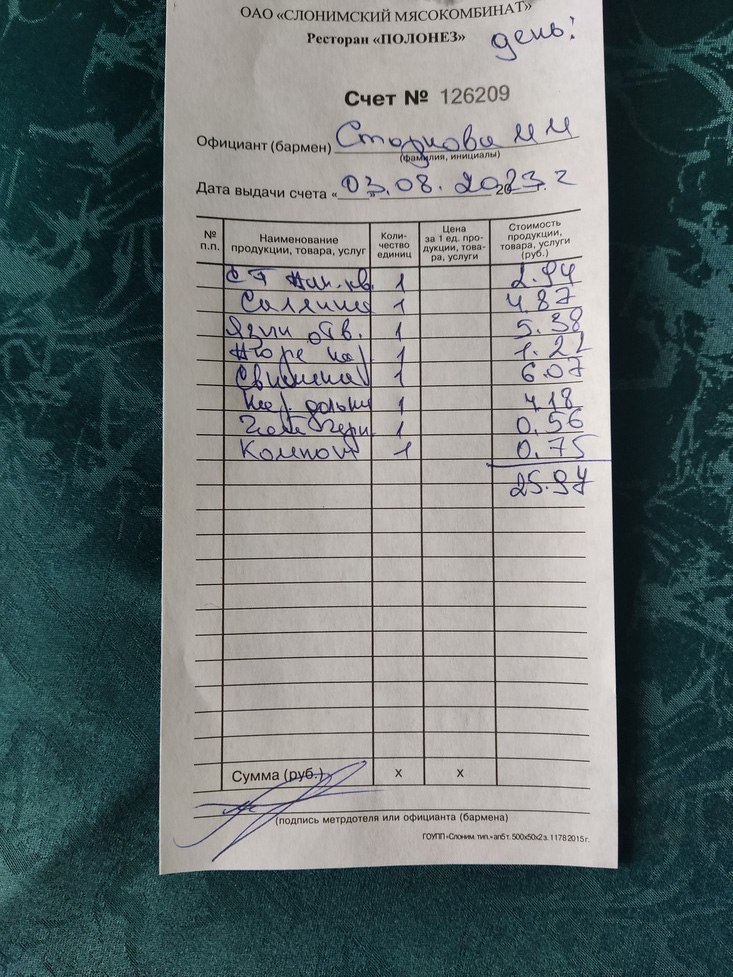 ОАО «СЛОНИМСКИЙ МЯСОКОМБИНАТ»
Ресторан «ПОЛОНЕЗ»
день!
Счет № 126209
Официант (бармен)
(фамилия, инициалы)
Дата выдачи счета «03.08.2023 г
№ п.п. Наименование продукции, товара, услуг Коли-чество единиц Цена за 1 ед. про-дукции, това-ра, услуги Стоимость продукции, товара, услуги (руб.)
1 2.94
Солянка 1 4.87
Язык отв. 1 5.38
Пюре 1 1.22
Свинина 1 6.07
Кар. дольки 1 4.18
1 0.56
Компот 1 0.75
25.97
Сумма (руб.) х х
(подпись метрдотеля или официанта (бармена)
ГОУПП «Слоним. тип.» апб т. 500х50х2 з. 1178 2015 г.